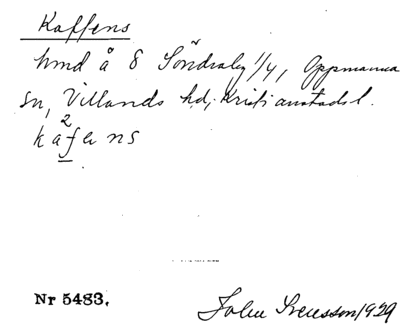 Kaffens
hmd å 8 Söndraby 1/4, Oppmanna
sn, Villands hd, Kristianstads l.
kafens
2
Nr 5483.
John Svensson 1929